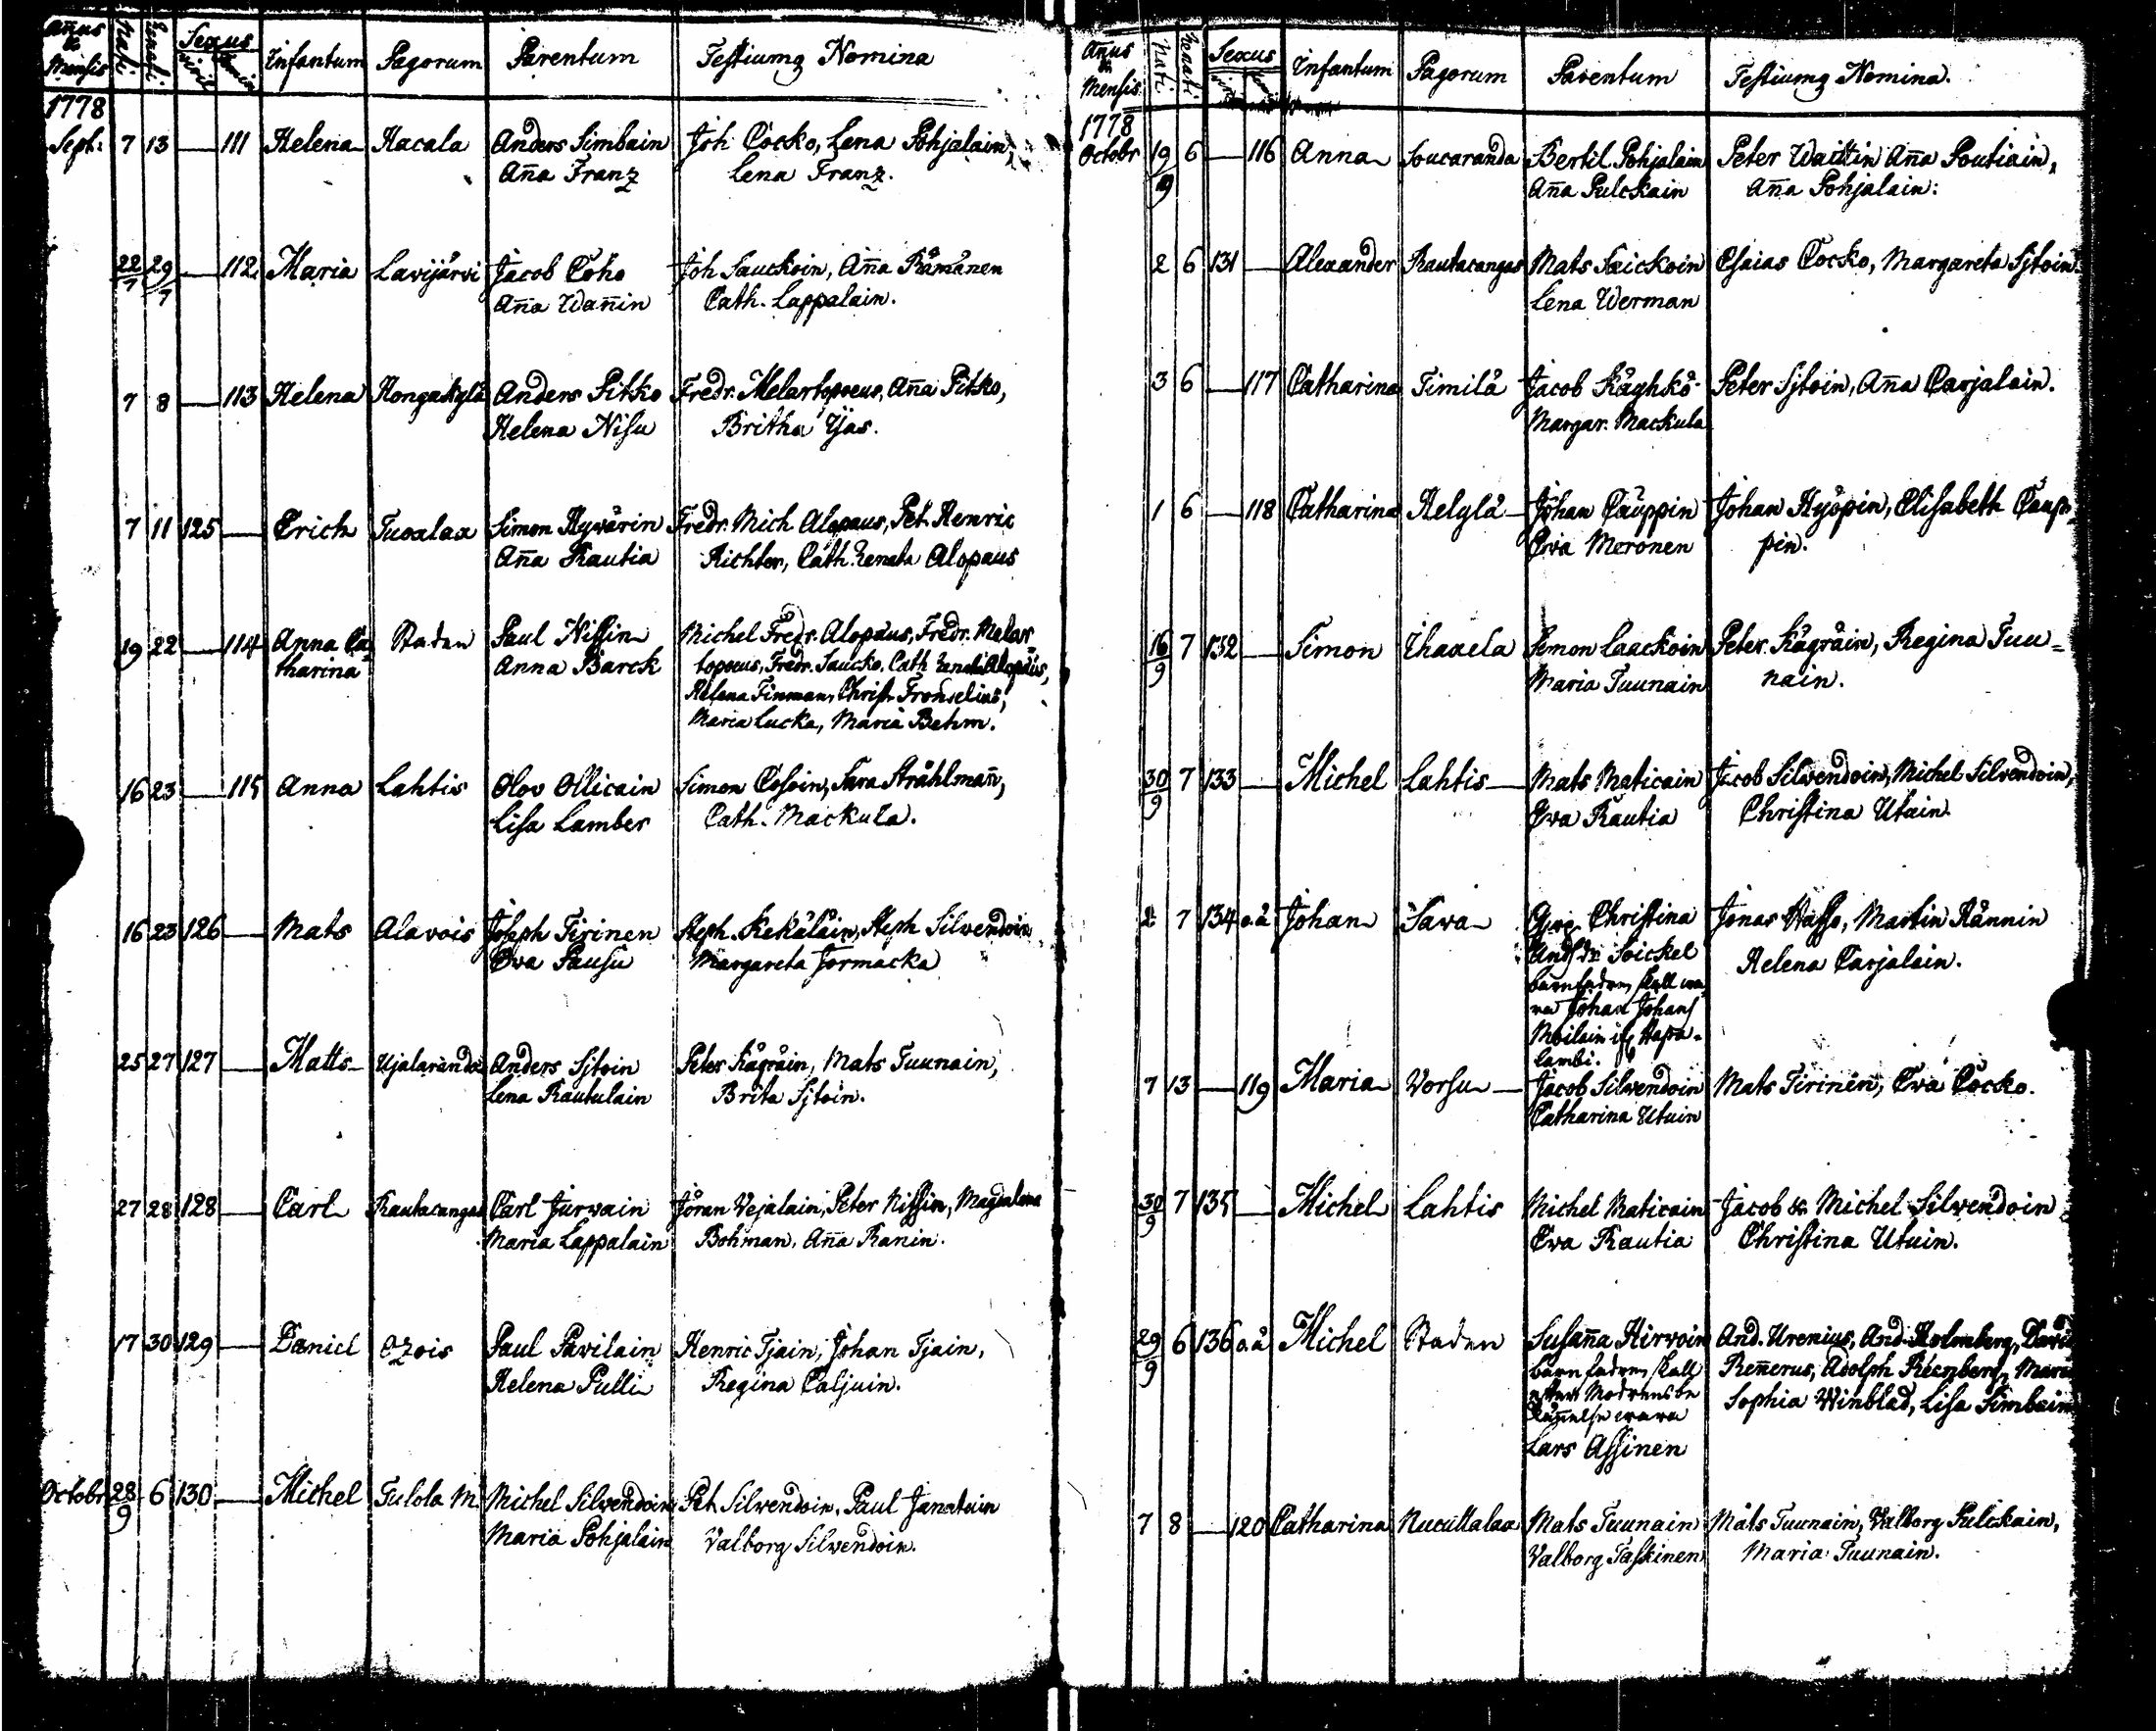 Añus & Mensis Nati Renati Sexus viril. femin. Infantum Pagorum Parentum Testiumq Nomina
1778
Sept: 7 13 — 111 Helena Hacala Anders Simbain Joh Cocko, Lena Pohjalain,
Aña Franz Lena Franz.
22/7 29/7 — 112 Maria Lavijärvi Jacob Coho Joh Sauckoin, Aña Rämänen
Aña Wañin Cath. Lappalain.
7 8 — 113 Helena Hongakylä Anders Pitko Fredr. Melartopoeus, Aña Pitko,
Helena Nisu Britha Ijäs.
7 11 125 — Erich Tuoxlax Simon Hyvärin Fredr. Mich Alopaus, Pet. Henric
Aña Rautia Richter, Cath. Renata Alopaus
19 22 — 114 Anna Ca= Staden Paul Nissin Michel Fredr. Alopäus, Fredr. Melar
tharina Anna Barck topoeus, Fredr. Saucko, Cath Renata Alopäus,
Helena Finman, Christ. Tronselius,
Maria Lucka, Maria Behm.
16 23 — 115 Anna Lahtis Olov Ollicain Simon Cosoin, Sara Stråhlmañ,
Lisa Lamber Cath. Mackula.
16 23 126 — Mats Alavois Joseph Tirinen Steph. Kekäläin, Steph Silvendoin
Eva Pausu Margareta Jormacka
25 27 127 — Matts Ujalaranda Anders Sjtoin Peter Kägräin, Mats Tuunain,
Lena Rautulain Brita Sjtoin.
27 28 128 — Carl Rautacangas Carl Jurvain Jöran Vejalain, Peter Nissin, Magdalena
Maria Lappalain Bohman, Aña Ranin.
17 30 129 — Daniel Ozois Paul Pavilain Henric Tjain, Johan Tjain,
Helena Pulli Regina Caljuin.
Octobr 28/9 6 130 — Michel Tulola M. Michel Silvendoin Pet. Silvendoin, Paul Janatuin
Maria Pohjalain Valborg Silvendoin.
Añus & Mensis Nati Renati Sexus Infantum Pagorum Parentum Testiumq Nomina.
1778
Octobr 19/9 6 — 116 Anna Soucaranda Bertil Pohjalain Peter Waittin Aña Poutiain,
Aña Pulckain Aña Pohjalain:
2 6 131 — Alexander Rautacangas Mats Saickoin Esaias Cocko, Margareta Sjtoin
Lena Werman
3 6 — 117 Catharina Timilä Jacob Käghkö Peter Sjtoin, Aña Carjalain.
Margar. Mackula
1 6 — 118 Catharina Helylä Johan Cauppin Johan Hyöpin, Elisabeth Caup=
Eva Meronen pin.
16/9 7 132 — Simon Ihaxela Simon Laackoin Peter Kägräin, Regina Tuu=
Maria Tuunain nain.
30/9 7 133 — Michel Lahtis Mats Maticain Jacob Silvendoin, Michel Silvendoin,
Eva Rautia Christina Utuin.
2 7 134 o.ä Johan Sava Christina Jonas Hasso, Martin Hännin
And. dr Soickel Helena Carjalain.
barnfadren skall wa
ra Johan Johans
Moilain if. Hapa=
lambi.
7 13 — 119 Maria Vorsu Jacob Silvendoin Mats Tirinen, Eva Cocko.
Catharina Utuin
30/9 7 135 — Michel Lahtis Michel Maticain Jacob & Michel Silvendoin
Eva Rautia Christina Utuin.
29/9 6 136 o.ä Michel Staden Susaña Hirvoin And. Urenius, And. Holmberg, David
barnfadren skall Reñerus, Adolph Reenberg, Maria
efter Modrens be Sophia Winblad, Lisa Simbain
käñelse wara
Lars Assinen
7 8 — 120 Catharina Nucuttalax Mats Tuunain Mats Tuunain, Valborg Pulckain,
Valborg Taskinen Maria Tuunain.